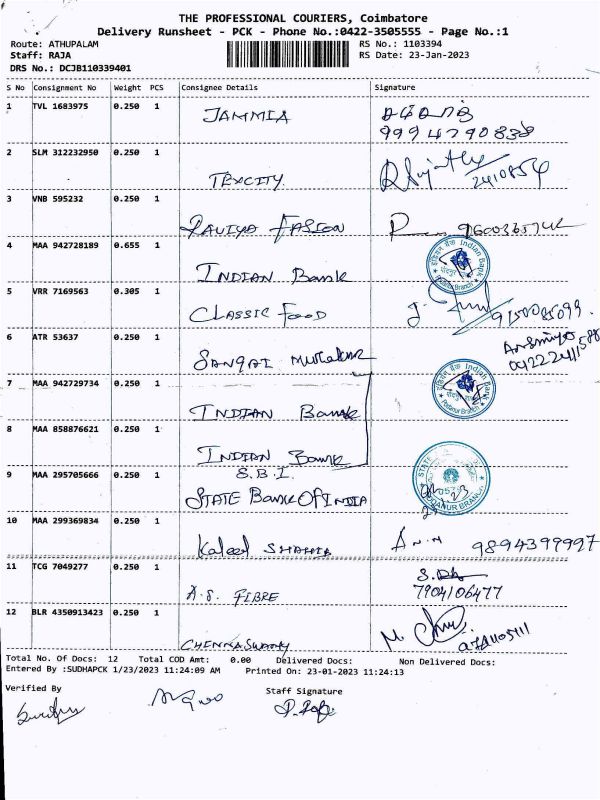 THE PROFESSIONAL COURIERS, Coimbatore
Delivery Runsheet - PCK - Phone No.:0422-3505555 - Page No.:1
Route: ATHUPALAM RS No.: 1103394
Staff: RAJA RS Date: 23-Jan-2023
DRS No.: DCJB110339401
S No Consignment No Weight PCS Consignee Details Signature
1 TVL 1683975 0.250 1 JAMMIA
9994790838
2 SLM 312232950 0.250 1 TEXCITY
3 VNB 595232 0.250 1 RAVIYA FASION
4 MAA 942728189 0.655 1 INDIAN Bank
इंडियन बैंक Indian Bank
Podanur Branch
5 VRR 7169563 0.305 1 CLASSIC FOOD 9150085099
6 ATR 53637 0.250 1
7 MAA 942729734 0.250 1 INDIAN Bank
इंडियन बैंक Indian Bank
Podanur Branch
8 MAA 858876621 0.250 1 INDIAN Bank
9 MAA 295705666 0.250 1 S.B.I.
STATE Bank OF INDIA
STATE
PODANUR BRANCH
10 MAA 299369834 0.250 1 Kaleel 9894399997
11 TCG 7049277 0.250 1 A.S. FIBRE
7904106477
12 BLR 4350913423 0.250 1 CHENNASWAMY
Total No. Of Docs: 12 Total COD Amt: 0.00 Delivered Docs: Non Delivered Docs:
Entered By :SUDHAPCK 1/23/2023 11:24:09 AM Printed On: 23-01-2023 11:24:13
Verified By Staff Signature